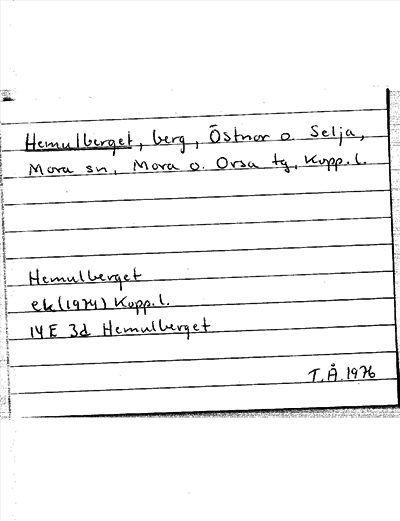 Hemulberget, berg, Östnor o. Selja,
Mora sn, Mora o. Orsa tg, Kopp. l.
Hemulberget
ek (1974) Kopp. l.
14 E 3d Hemulberget
T. Å. 1976